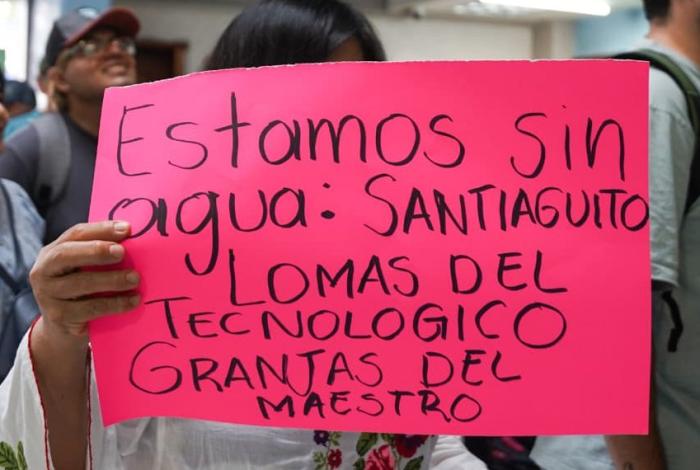 Estamos sin
agua: SANTIAGUITO
LOMAS DEL
TECNOLOGICO
GRANJAS DEL
MAESTRO